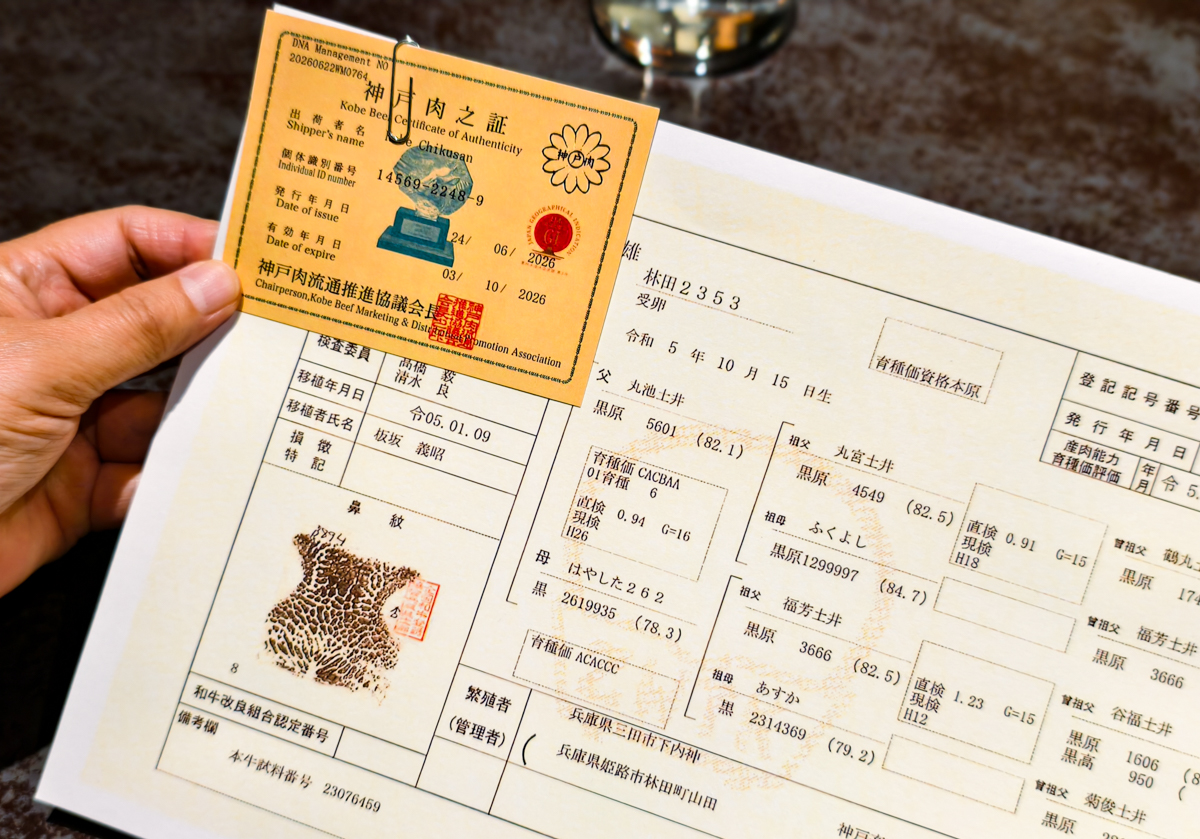 DNA Management NO
20260622WM0764
神戸肉之証
Kobe Beef Certificate of Authenticity
出荷者名
Shipper's name
Chikusan
個体識別番号
Individual ID number
14569-2248-9
発行年月日
Date of issue
24/ 06/ 2026
有効年月日
Date of expire
03/ 10/ 2026
神戸肉流通推進協議会長
Chairperson,Kobe Beef Marketing & Distribution Promotion Association
神戸肉
JAPAN GEOGRAPHICAL INDICATION
GI
雄
林田2353
受卵
令和 5 年 10 月 15 日生
育種価資格本原
登記記号番号
発行年月日
産肉能力
育種価評価
年
月
令5.
検査委員
高橋 毅
清水 良
移植年月日
令05.01.09
移植者氏名
板坂 義昭
損徴
特記
鼻紋
8
和牛改良組合認定番号
備考欄
本牛試料番号 23076459
父 丸池土井
黒原 5601 (82.1)
育種価 CACBAA
01育種 6
直検
現検 0.94 G=16
H26
母 はやした262
黒 2619935 (78.3)
育種価 ACACCC
繁殖者
(管理者)
兵庫県三田市下内神
兵庫県姫路市林田町山田
祖父 丸宮土井
黒原 4549 (82.5)
直検
現検 0.91 G=15
H18
祖母 ふくよし
黒原1299997 (84.7)
祖父 福芳土井
黒原 3666 (82.5)
直検
現検 1.23 G=15
H12
祖母 あすか
黒 2314369 (79.2)
曽祖父 鶴丸土
黒原 174
曽祖父 福芳土井
黒原 3666
曽祖父 谷福土井
黒原 1606
黒高 950
曽祖父 菊俊土井
黒原
神戸